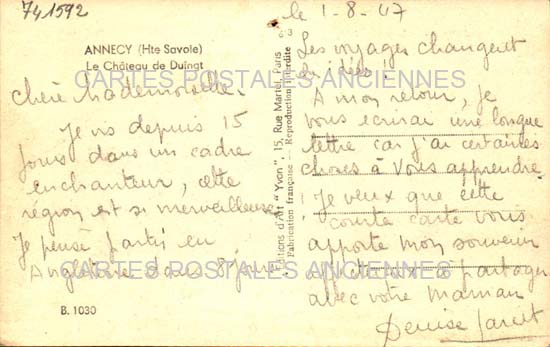 741592
ANNECY (Hte Savoie)
Le Château de Duingt
Chère Mademoiselle.
Je vis depuis 15
jours dans un cadre
enchanteur, cette
région est si merveilleuse
Je pense partir en
Angleterre dans 8 jours
B. 1030
Editions d'Art "Yvon", 15, Rue Martel, Paris
Fabrication française — Reproduction interdite
le 1-8-47
Les voyages changent
les idées!
A mon retour, Je
vous écrirai une longue
lettre car j'ai certaines
choses à Vous apprendre.
Je veux que cette
courte carte vous
apporte mon souvenir
affectueux à partager
avec votre Maman
Denise
CARTES POSTALES ANCIENNES
CARTES POSTALES ANCIENNES